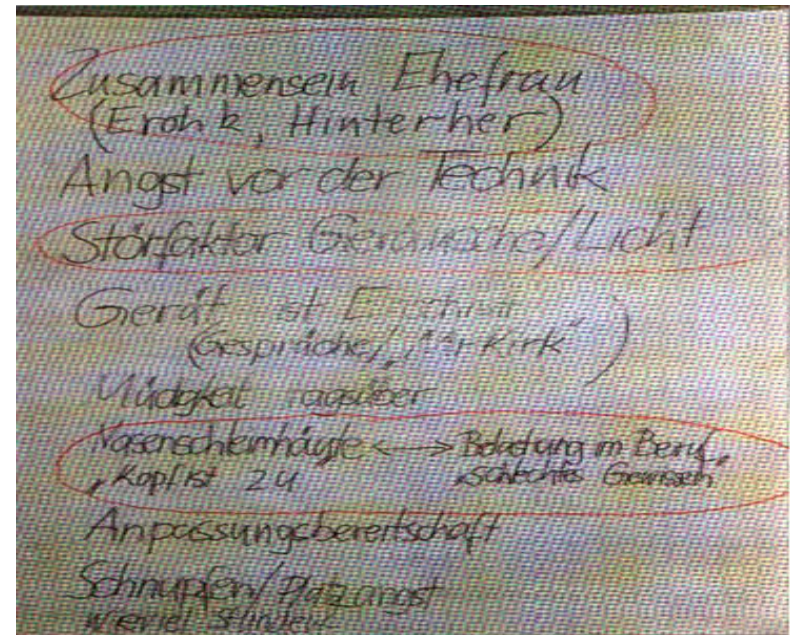 Zusammensein Ehefrau
(Erotik, Hinterher)
Angst vor der Technik
Störfaktor Geräusche/Licht
Gerät ist
(Gespräche/„Mr Kirk“)
Müdigkeit tagsüber
Nasenschleimhäute <—> Belastung im Beruf,
„Kopf ist zu „Schlechtes Gewissen
Anpassungsbereitschaft
Schnupfen/Platzangst
wieviel Stunden